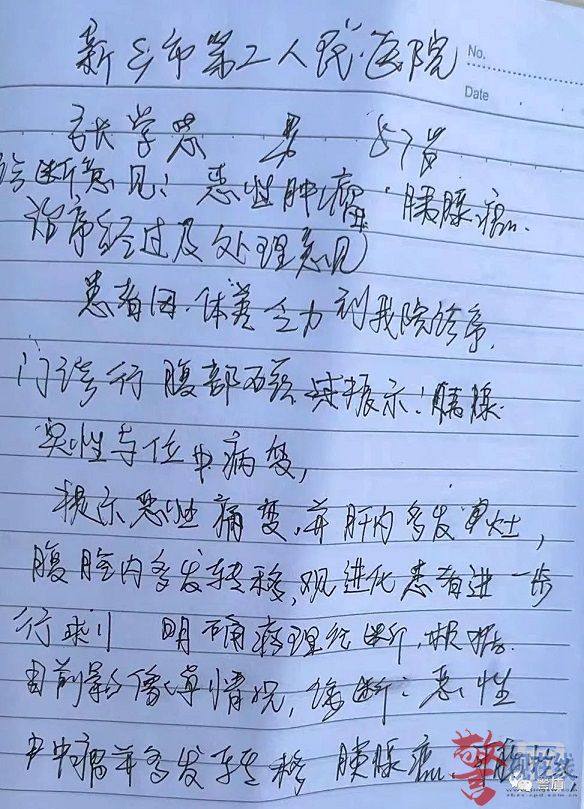 新乡市第二人民医院
No.
Date
张学思 男 57岁
诊断意见：恶性肿瘤．胰腺癌．
治疗经过及处理意见
患者因．体萎乏力到我院诊疗．
门诊行腹部磁共振示：胰腺
实性占位中病变，
提示恶性病变，并肝内多发病灶，
腹腔内多发转移，建议患者进一步
行 明确病理诊断，根据
目前影像 情况，诊断：恶性
肿瘤并多发转移 胰腺癌
警
在线
警